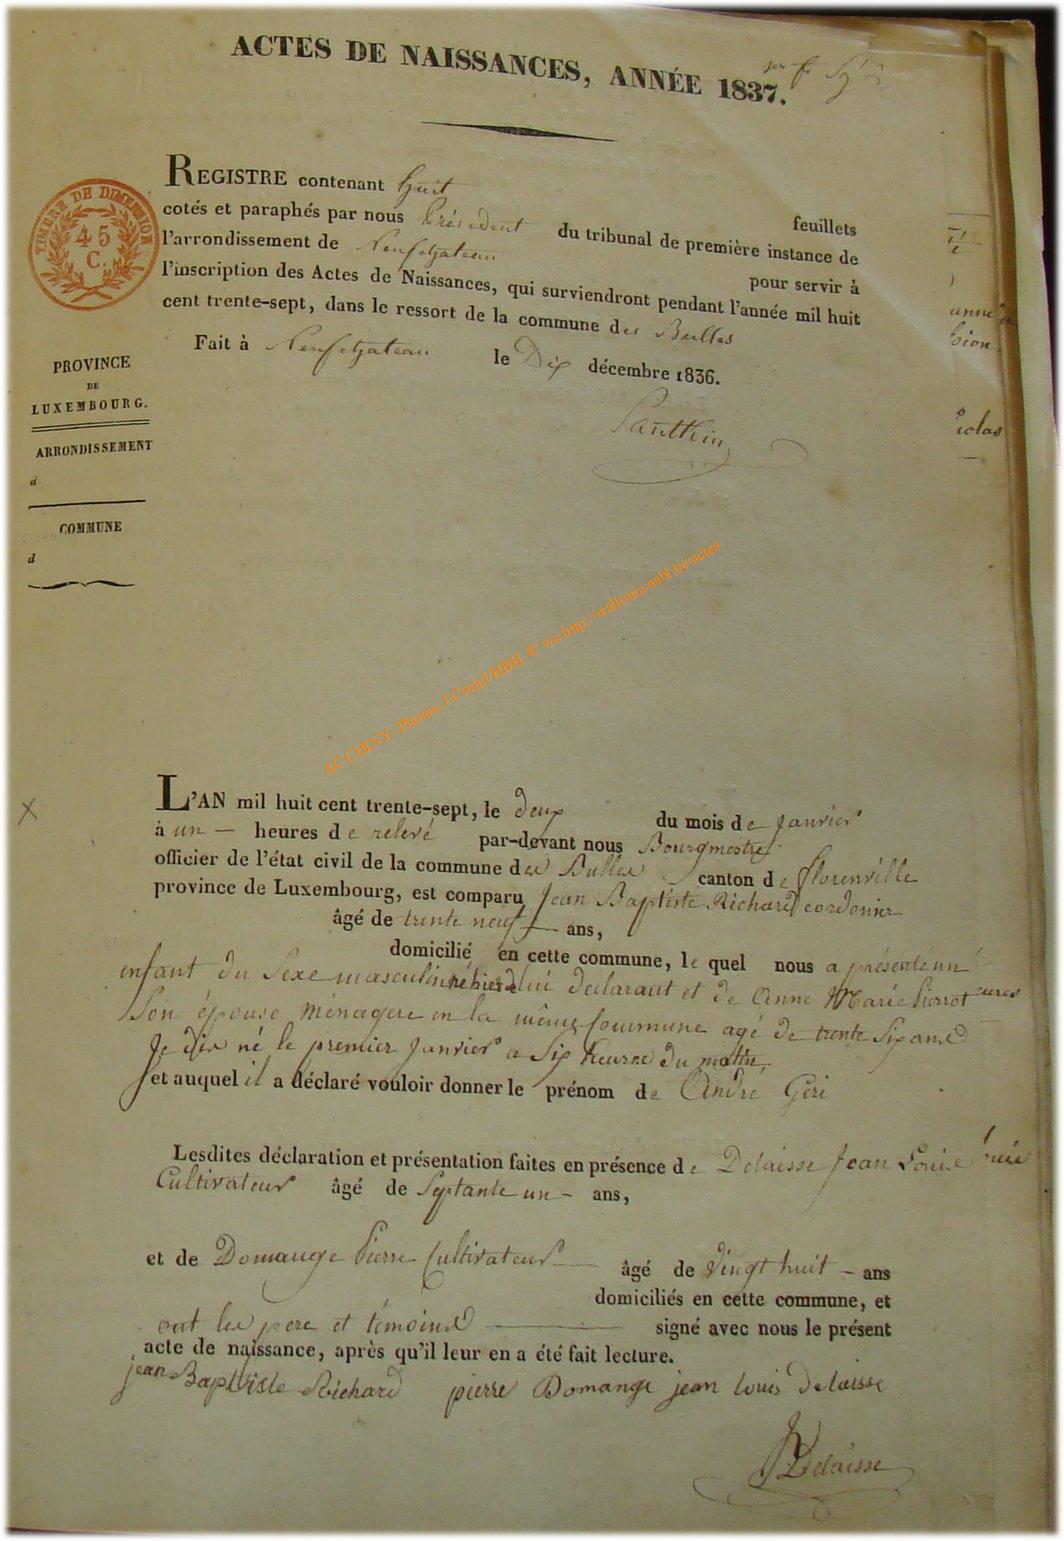 ACTES DE NAISSANCES, ANNÉE 1837.
TIMBRE DE DIMENSION
45
C.
REGISTRE contenant huit feuillets
cotés et paraphés par nous Président du tribunal de première instance de
l'arrondissement de Neufchateau pour servir à
l'inscription des Actes de Naissances, qui surviendront pendant l'année mil huit
cent trente-sept, dans le ressort de la commune des Bulles
Fait à Neufchateau le Dix décembre 1836.
PROVINCE
DE
LUXEMBOURG.
ARRONDISSEMENT
d
COMMUNE
d
AC CHINY - Photos J.Cornil/HBH @ via http://wallonia-asbl.be/actes
L'AN mil huit cent trente-sept, le deux du mois de Janvier
à un — heures de relevé par-devant nous Bourgmestre
officier de l'état civil de la commune des Bulles canton de florenville
province de Luxembourg, est comparu Jean Baptiste Richard cordonier
âgé de trente neuf — ans,
domicilié en cette commune, le quel nous a présenté un
enfant du Sexe masculin né hier de lui declarant et de Anne Marie Pierrot
Son épouse ménagere en la même Commune agé de trente Six ans
Je dis né le premier Janvier a Six heures du matin,
et auquel il a déclaré vouloir donner le prénom de André Géri
Lesdites déclaration et présentation faites en présence de Delaisse Jean Louis
Cultivateur âgé de Septante un — ans,
et de Domange Pierre Cultivateur — âgé de Vingt huit — ans
domiciliés en cette commune, et
ont les pere et témoins — signé avec nous le présent
acte de naissance, après qu'il leur en a été fait lecture.
jean Baptiste Richard pierre Domange jean louis Delaisse
Delaisse